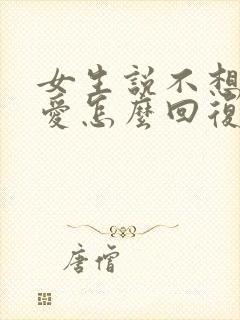 女生説不想
愛怎麼回復
唐僧